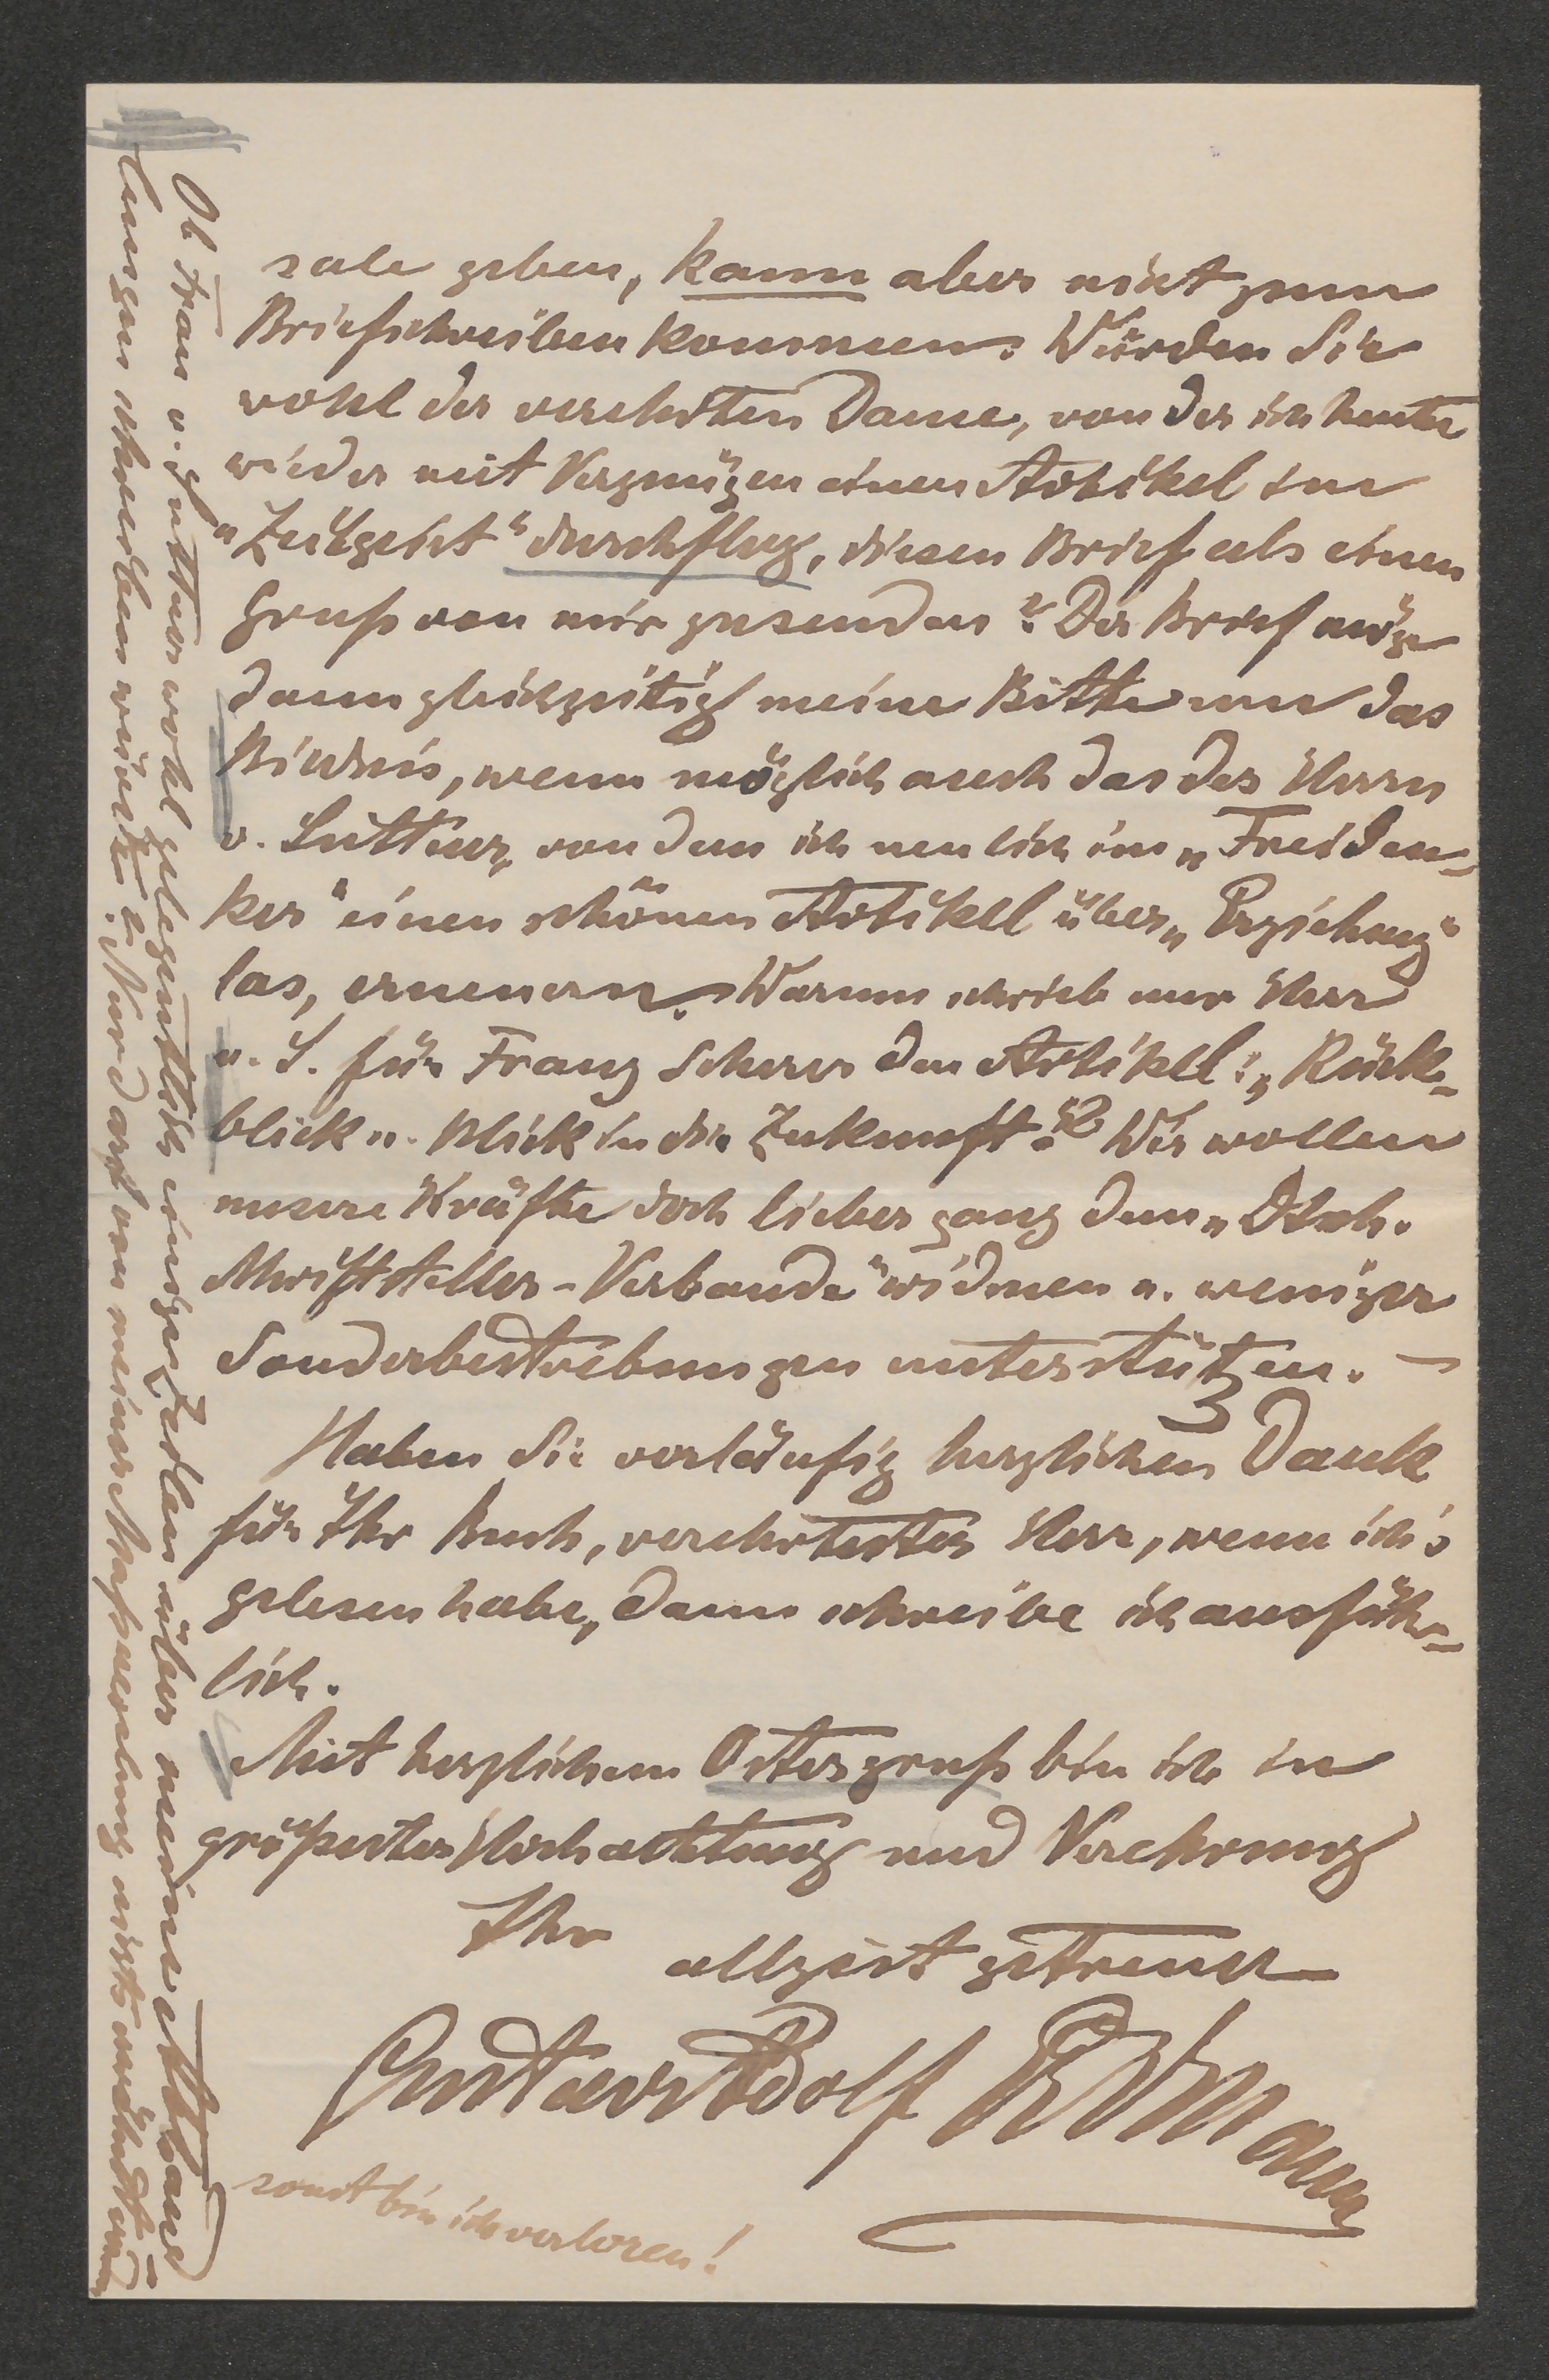 sale geben, kann aber nicht zum
Briefschreiben kommen. Würden Sie
wohl der verehrten Dame, von der ich heute
wieder mit Vergnügen einen Artikel im
„Zeitgeist" durchflog, diesen Brief als einen
Gruß von mir zusenden? Der Brief möge
dann gleichzeitig meine Bitte um das
Bildnis, wenn möglich auch das des Herrn
v. Suttner, von dem ich neulich im „Freiden-
ker" einen schönen Artikel über „Erziehung"
las, erneuern. Warum schrieb nur Herr
v. S. für Franz Scherer den Artikel: „Rück-
blick u. Blick in die Zukunft"? Wir wollen
unsere Kräfte doch lieber ganz dem „Dtsch.
Schriftsteller-Verbande" widmen u. weniger
Sonderbestrebungen unterstützen. –
Haben Sie vorläufig herzlichen Dank
für Ihr Buch, verehrtester Herr, wenn ich's
gelesen habe, dann schreibe ich ausführ-
lich.
Mit herzlichem Ostergruß bin ich in
größester Hochachtung und Verehrung
Ihr
allzeit getreuer
Gustav Adolf Erdmann
Ob Frau v. Suttner wohl gelegentlich einige Zeilen über meine Abhand-
lungen schreiben würde? Nur darf von meiner Maßregelung nichts erwähnt sein,
sonst bin ich verloren!